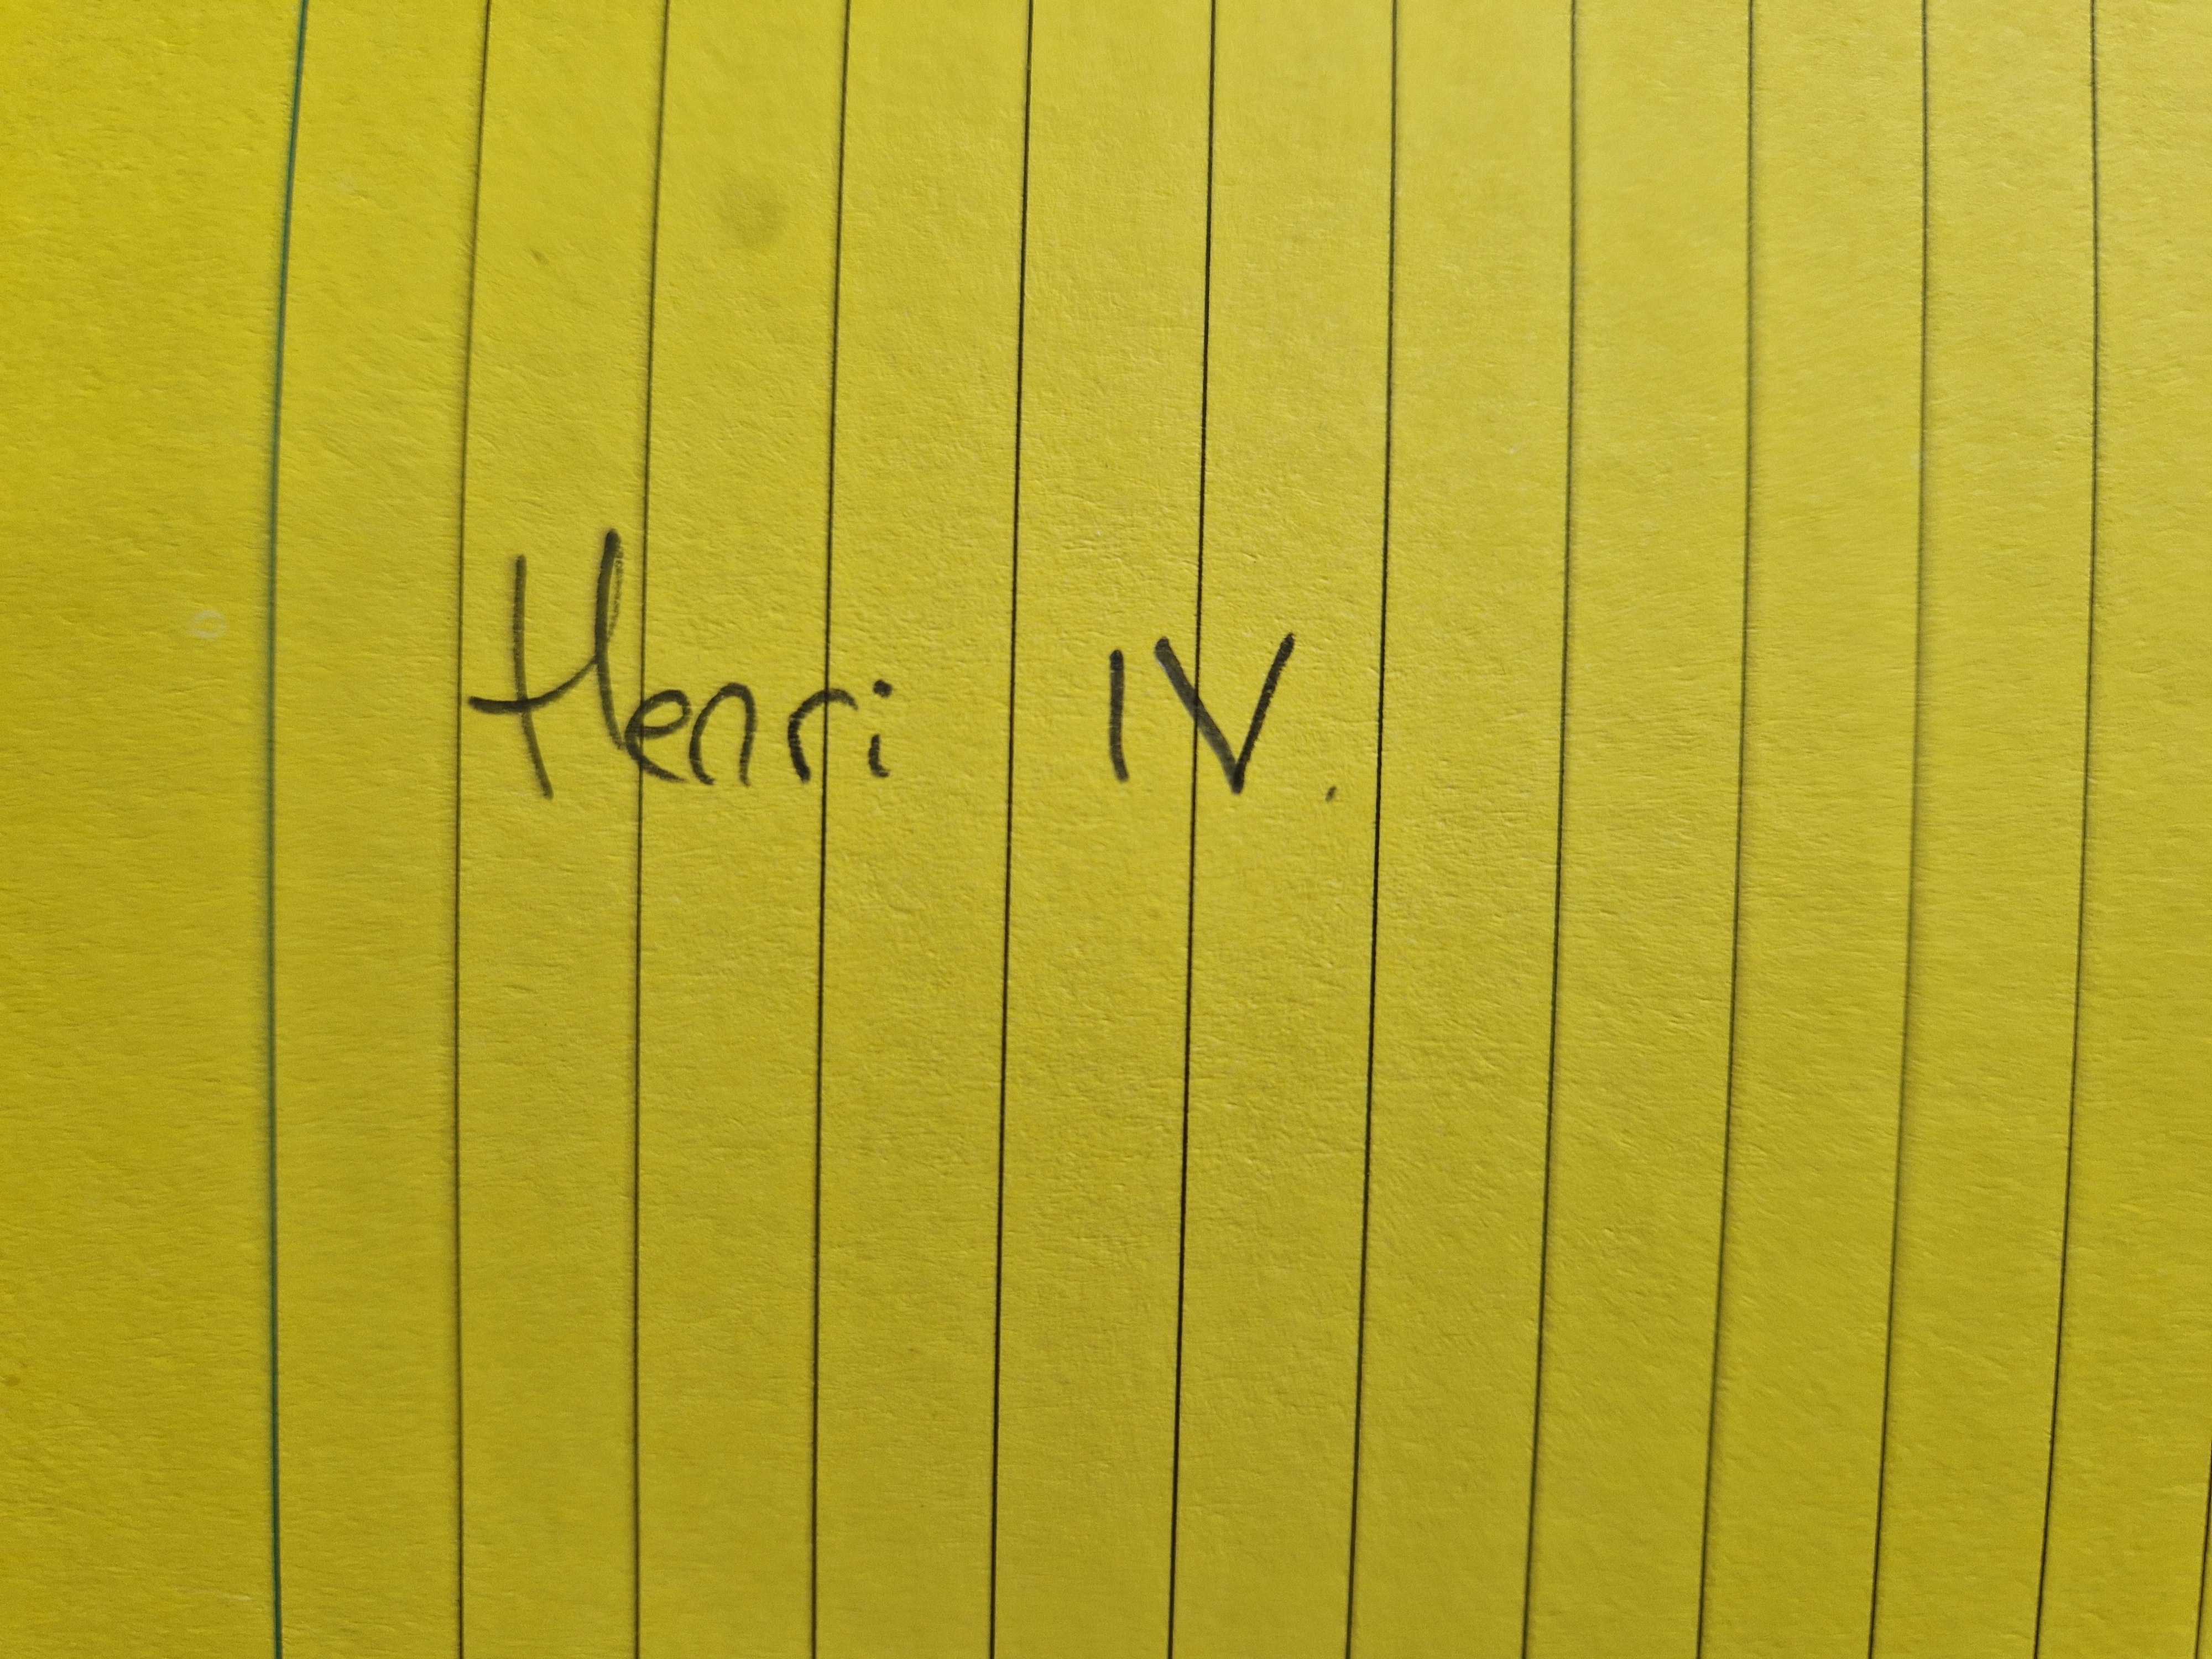 Henri IV.